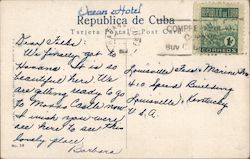 Ocean Hotel
Republica de Cuba
Tarjeta Postal - Post Card
CORREOS
1c
Dear Folks:
We finally got
Havana. It is so
beautiful here. We
are getting ready to go
to Morro Castle now.
I wish you were
here to see this
lovely place.
Barbara
Louisville Fire & Marine Ins
410 Speed Building
Louisville, Kentucky
U.S.A.